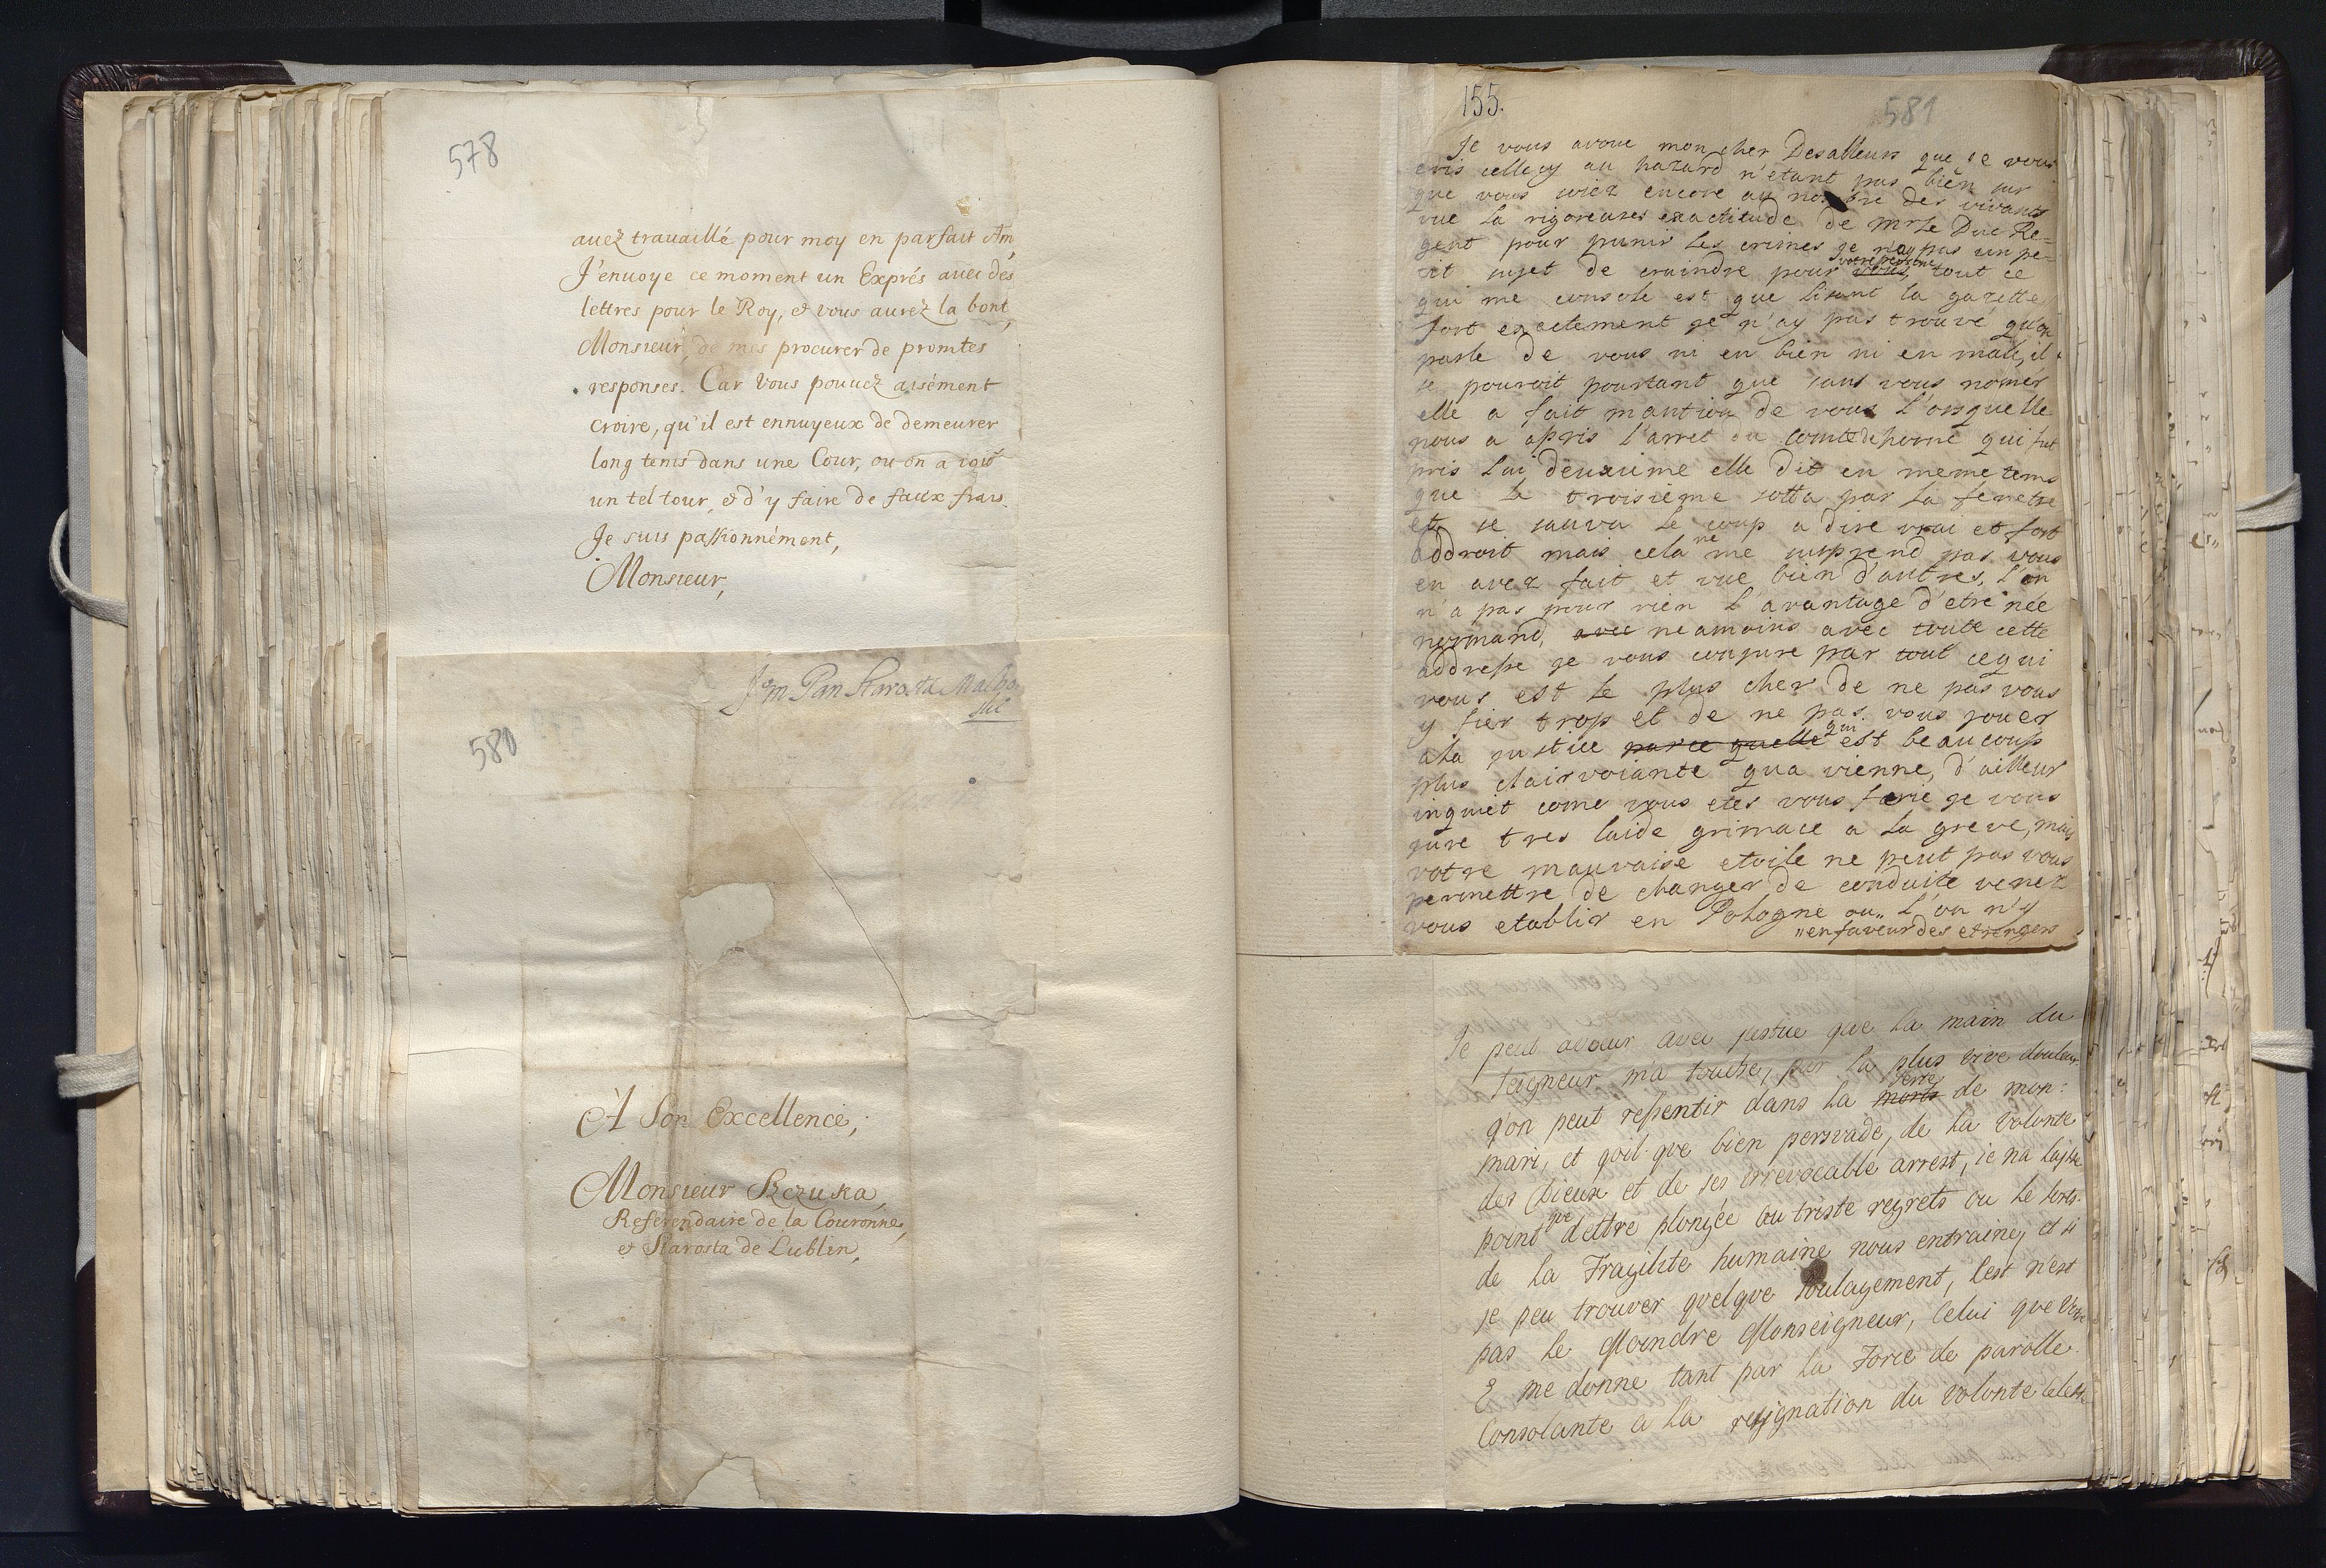 578
auez trauaillé pour moy en parfait Am
J'enuoye ce moment un Exprés auec des
lettres pour le Roy, et vous aurez la bont
Monsieur, de mes procurer de promtes
responses. Car Vous pouuez aisément
croire, qu'il est ennuyeux de demeurer
long tems dans une Cour, ou on a ioüé
un tel tour, et d'y faire de faux frais.
Je suis passionnément,
Monsieur,
580
Jm Pan Starosta
A Son Excellence,
Monsieur Szczuka,
Referendaire de la Couronne,
et Starosta de Lublin,
155.
581
Je vous avoue mon cher Desalleurs que je vous
cris celle cy au hazard n'etant pas bien sur
que vous soiez encore au nombre des vivants
vue la rigoreuses exactitude de Mr le Duc Re=
gent pour punir les crimes je n'ay pas un pe-
tit sujet de craindre pour vous votre persone, tout ce
qui me console est que lisant la gazette
fort exactement je n'ay pas trouvé qu'on
parle de vous ni en bien ni en male, il
se pouroit pourtant que sans vous nomér
elle a fait mantion de vous l'orsquelle
nous a apris l'arret du comte de horne qui fut
pris lui deuxieme elle dit en meme tems
que le troisieme sotta par la fenetre
et se sauva le coup a dire vrai et fort
addroit mais cela ne me surprend pas vous
en avez fait et vue bien d'autres, l'on
n'a pas pour rien l'avantage d'etre née
normand, avec neamoins avec toute cette
addresse je vous conjure par tout cequi
vous est le plus cher de ne pas vous
y fier trop et de ne pas vous jouer
ala justice parce quelle qui est beaucoup
plus clairvoiante qua vienne, d'ailleur
inquiet come vous etes vous ferie je vous
jure tres laide grimace a la greve, mais
votre mauvaise etoile ne peut pas vous
permettre de changer de conduite venez
vous etablir en Pologne ou" l'on n'y
"en faveur des etrengers
Je peut avouer avec justice que la main du
Seigneur m'a touche, par la plus vive douleur
q'on peut ressentir dans la morte perte de mon:
mari, et qoil que bien persvadé, de la volonte
des Dieux et de ses irrevocable arrest, ie na laisse
point que dettre plongée au triste regrets ou le sorts
de la Fragilite humaine nous entraine, et si
je peu trouver quelque Soulagement, Cest n'est
pas le Moindre Monseigneur, Celui que Votre
E me donne tant par la Force de parolle
Consolante a la resignation du volonte Celeste